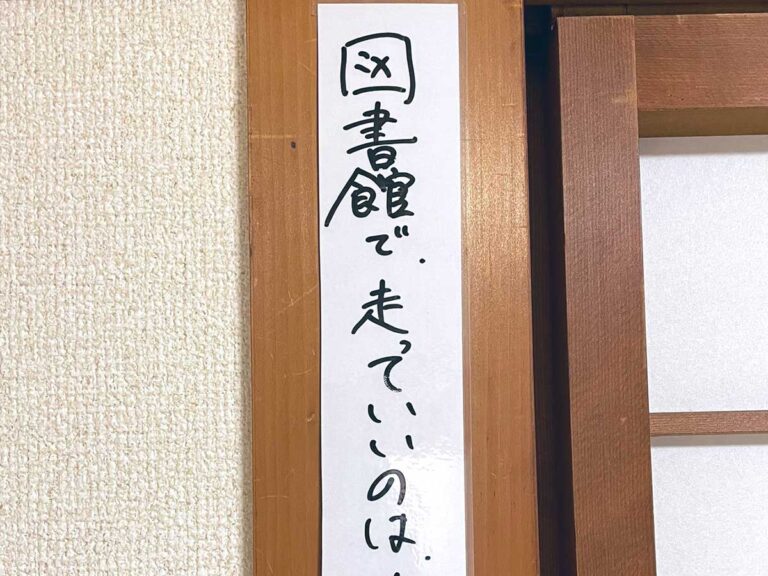 図書館で、走っていいのは、